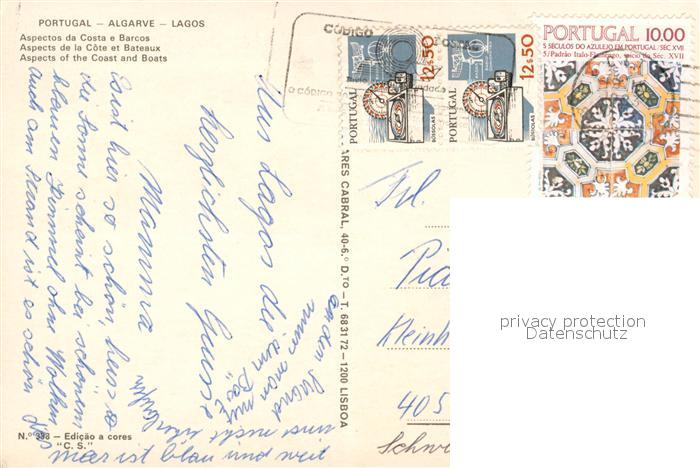 PORTUGAL — ALGARVE — LAGOS
Aspectos da Costa e Barcos
Aspects de la Côte et Bateaux
Aspects of the Coast and Boats
CÓDIGO
POSTAL
O CÓDIGO
12$50
PORTUGAL
BÚSSOLAS
12$50
PORTUGAL
BÚSSOLAS
PORTUGAL 10.00
5 SÉCULOS DO AZULEJO EM PORTUGAL/SÉC XVII
5/Padrão Italo-Flamengo, início do Séc. XVII
Aus Lagos die
herzlichsten Grüsse
Mamma
Es ist hier so schön, heiss
die Sonne scheint bei schönem
blauen Himmel ohne Wolken
auch am Strand ist es schön das
mer ist blau und weit
an dem Strand
muss man
am
muss nicht
ARES CABRAL, 40-6.º D.TO - T. 683172 - 1200 LISBOA
Frl.
Kleinh
405
Schw
N.º 398 — Edição a cores
"C. S."
privacy protection
Datenschutz